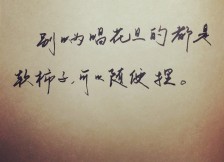 别以为唱花旦的都是
软柿子,可以随便捏。